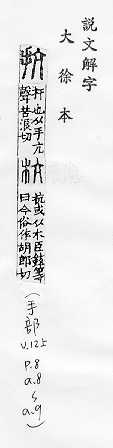 說文解字
大徐本
抗 扞也从手亢
聲苦浪切
杭 抗或从木臣鉉等
曰今俗作胡郎切
(手部
v.125
P.8
a.8
s
a.9)